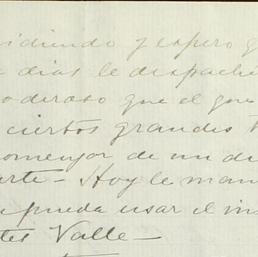 idiendo y espero q
dias le despach
oderoso que el que
ciertos grandes
omenor de un d
arte - Hoy le man
pueda usar el in
tes Valle -